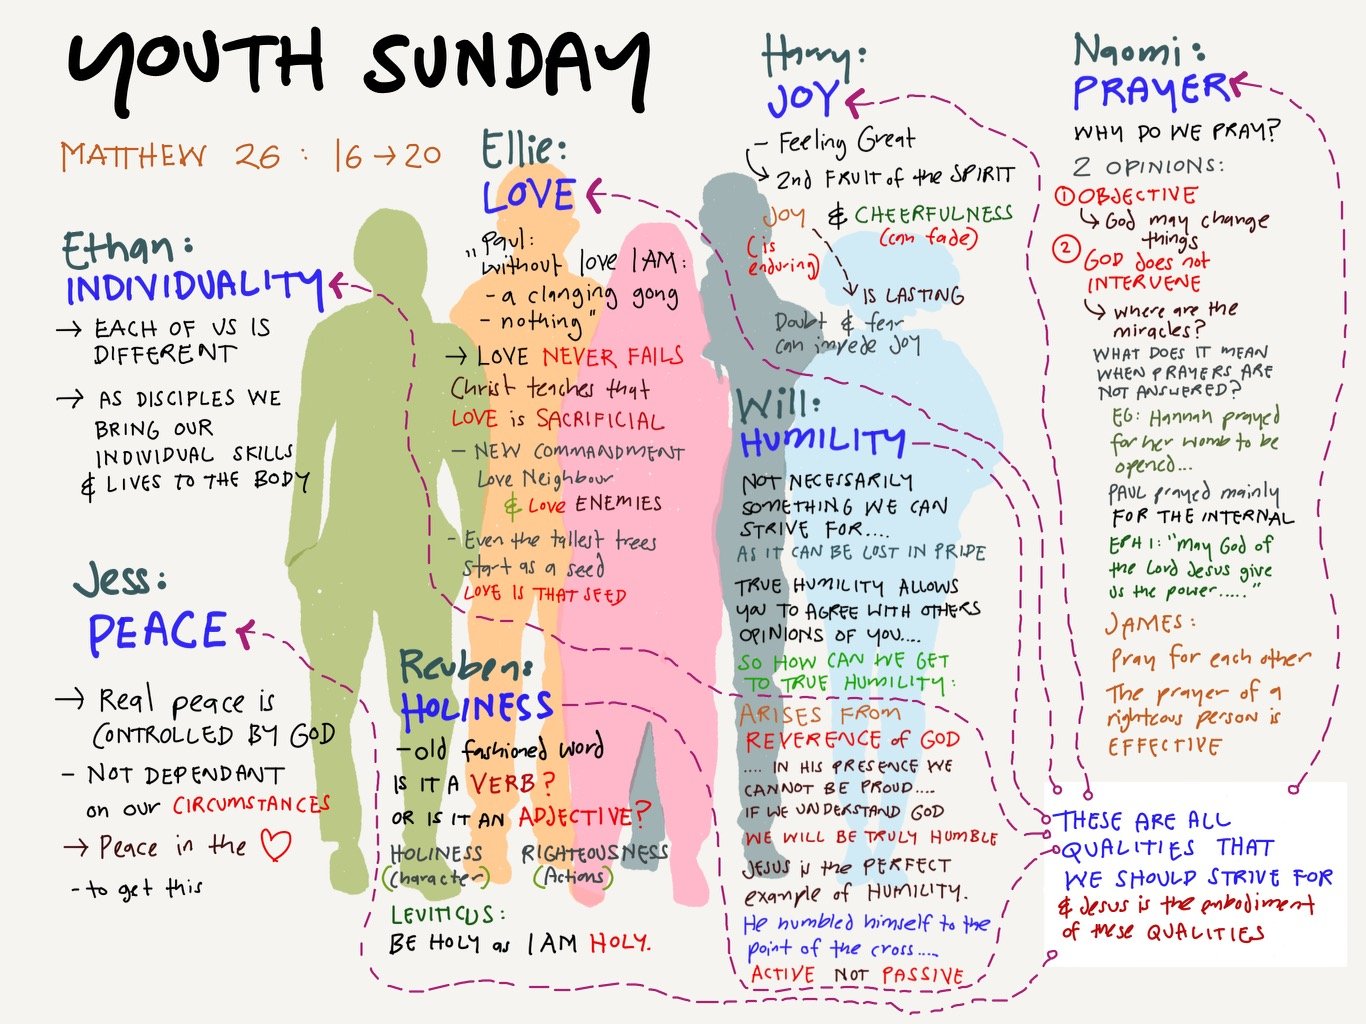 YOUTH SUNDAY
MATTHEW 26 : 16 → 20
Ethan:
INDIVIDUALITY
→ EACH OF US IS
DIFFERENT
→ AS DISCIPLES WE
BRING OUR
INDIVIDUAL SKILLS
& LIVES TO THE BODY
Jess:
PEACE
→ Real peace is
CONTROLLED BY GOD
- NOT DEPENDANT
on our CIRCUMSTANCES
→ Peace in the ♡
- to get this
Ellie:
LOVE
"Paul:
without love I AM:
- a clanging gong
- nothing"
→ LOVE NEVER FAILS
Christ teaches that
LOVE is SACRIFICIAL
- NEW COMMANDMENT
Love Neighbour
& Love ENEMIES
- Even the tallest trees
start as a seed
LOVE IS THAT SEED
Reuben:
HOLINESS
- old fashioned word
IS IT A VERB?
OR IS IT AN ADJECTIVE?
HOLINESS RIGHTEOUSNESS
(Character) (Actions)
LEVITICUS:
BE HOLY as I AM HOLY.
Harry:
JOY
- Feeling Great
→ 2nd FRUIT of the SPIRIT
JOY & CHEERFULNESS
(is enduring) (can fade)
IS LASTING
Doubt & fear
can impede JOY
Will:
HUMILITY
NOT NECESSARILY
SOMETHING WE CAN
STRIVE FOR....
AS IT CAN BE LOST IN PRIDE
TRUE HUMILITY ALLOWS
YOU TO AGREE WITH OTHERS
OPINIONS OF YOU....
SO HOW CAN WE GET
TO TRUE HUMILITY:
ARISES FROM
REVERENCE of GOD
.... IN HIS PRESENCE WE
CANNOT BE PROUD....
IF WE UNDERSTAND GOD
WE WILL BE TRULY HUMBLE
JESUS is the PERFECT
example of HUMILITY.
He humbled himself to the
point of the cross....
ACTIVE NOT PASSIVE
Naomi:
PRAYER
WHY DO WE PRAY?
2 OPINIONS:
① OBJECTIVE
↳ God may change
things
② GOD does not
INTERVENE
↳ where are the
miracles?
WHAT DOES IT MEAN
WHEN PRAYERS ARE
NOT ANSWERED?
EG: Hannah prayed
for her womb to be
opened...
PAUL prayed mainly
FOR THE INTERNAL
EPH 1: "May God of
the Lord Jesus give
us the power....."
JAMES:
Pray for each other
The prayer of a
righteous person is
EFFECTIVE
THESE ARE ALL
QUALITIES THAT
WE SHOULD STRIVE FOR
& Jesus is the embodiment
of these QUALITIES